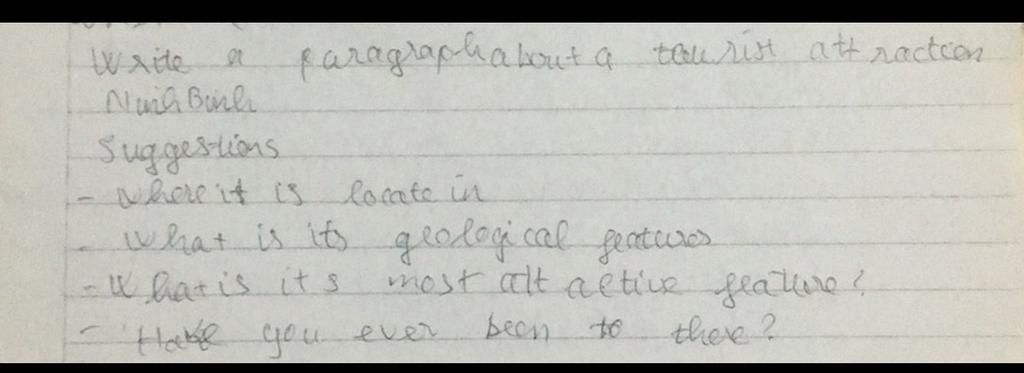 Write a paragraph about a tourist attraction
Ninh Binh
Suggestions
- Where it is locate in
- What is its geological features
- What is it s most att active feature?
- Have you ever been to there?